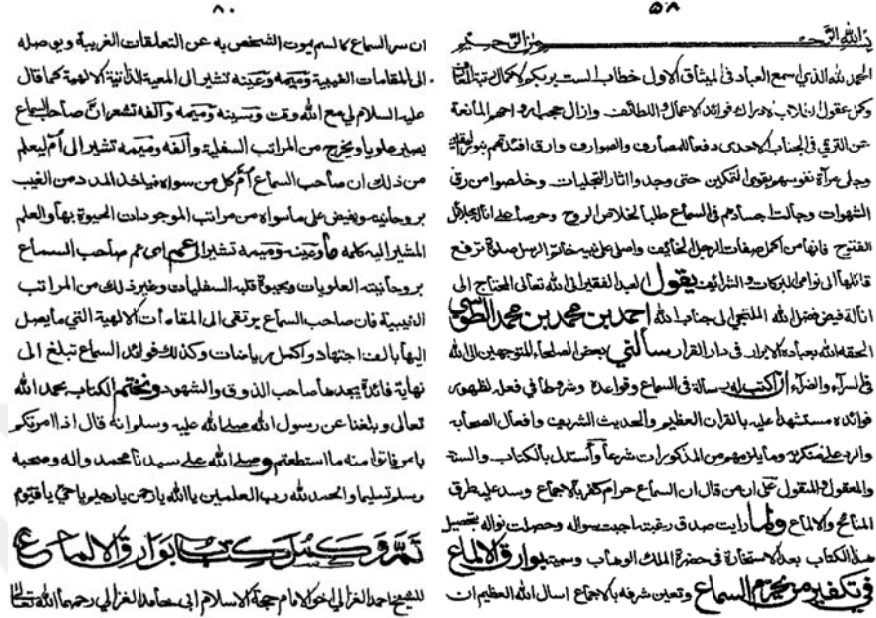 ٥٨
بسم الله الرحمن الرحيم
الحمد لله الذي اسمع العباد في الميثاق الاول خطاب الست بربكم لاكمال رتبة
عقول لادراك فوائد الاعمال واللطائف وازال حجب المانعة
عن الترقي في الجناب الاحدي دفعا للمصارف والصوارف وارق افئدتهم بنور
وجلى مرآة نفوسهم بقوى التمكين حتى وجدوا اثار التجليات وخلصوا من رق
الشهوات وجالت اجسادهم في السماع طلبا لخلاص الروح وحرصا على
صفات الرجل الخائف واصلى على نبيه خاتم الرسل صلوة ترفع
قائلها الى نوامى البركات والشرائف يقول العبد الفقير الى الله تعالى المحتاج الى
انالة فيض فضل الله الملتجى الى جناب الله احمد بن محمد بن محمد الطوسي
الحقه الله بعباده الابرار في دار القرار سألني بعض الصلحاء المتوجهين الى الله
في السرآء والضرآء ان اكتب له رسالة في السماع وقواعده وشرطا في فعله لظهور
فوائده مستشهدا عليه بالقران العظيم والحديث الشريف وافعال الصحابه
وارد على منكريه وما يلزمهم من المذكورات شرعا وأستدل بالكتاب والسنة
والمعقول والمنقول على ان من قال ان السماع حرام كفر بالاجماع وسد عليه طرق
والالماع ولما رايت صدق رغبته اجبت سواله وحصلت نواله بتحصيل
هذا الكتاب بعد الاستخارة في حضرة الملك الوهاب وسميته بوارق الالماع
في تكفير من يحرم السماع وتعين شرفه بالاجماع اسال الله العظيم ان
٨٠
ان سر السماع كالسم يموت الشخص به عن التعلقات الغريبة ويوصله
الى المقامات الغيبية وميمه وعينه تشير الى المعية الذاتية الالهية كما قال
عليه السلام لي مع الله وقت وسينه وميمه وآلفه تشعر انّ صاحب السماع
يصير علويا ويخرج من المراتب السفلية وآلفه وميمه تشير الى اُمّ ليعلم
من ذلك ان صاحب السماع اُمّ كل من سواه فياخذ المدد من الغيب
بروحانيته ويفيض على ما سواه من مراتب الموجودات الحيوة بها والعلم
المشير اليه كلمة ما وعينه وميمه تشير الى عم اى عم صاحب السماع
بروحانيته العلويات وبحيوة قلبه السفليات وغير ذلك من المراتب
الغيبية فان صاحب السماع يرتقى الى المقامات الالهية التي ما يصل
اليها بالف اجتهاد واكمل رياضات وكذلك فوائد السماع تبلغ الى
نهاية فائدة يجدها صاحب الذوق والشهود ونختم الكتاب بحمد الله
تعالى وبلغنا عن رسول الله صلى الله عليه وسلم انه قال اذا امرتكم
بامر فاتوا منه ما استطعتم وصلى الله على سيدنا محمد واله وصحبه
وسلم تسليما والحمد لله رب العلمين يا الله يا رحمن يا رحيم يا حيّ يا قيوم
تمّ وكمل كتاب بوارق الالماع
للشيخ احمد الغزالي اخو الامام حجة الاسلام ابى حامد الغزالي رحمهما الله تعالى